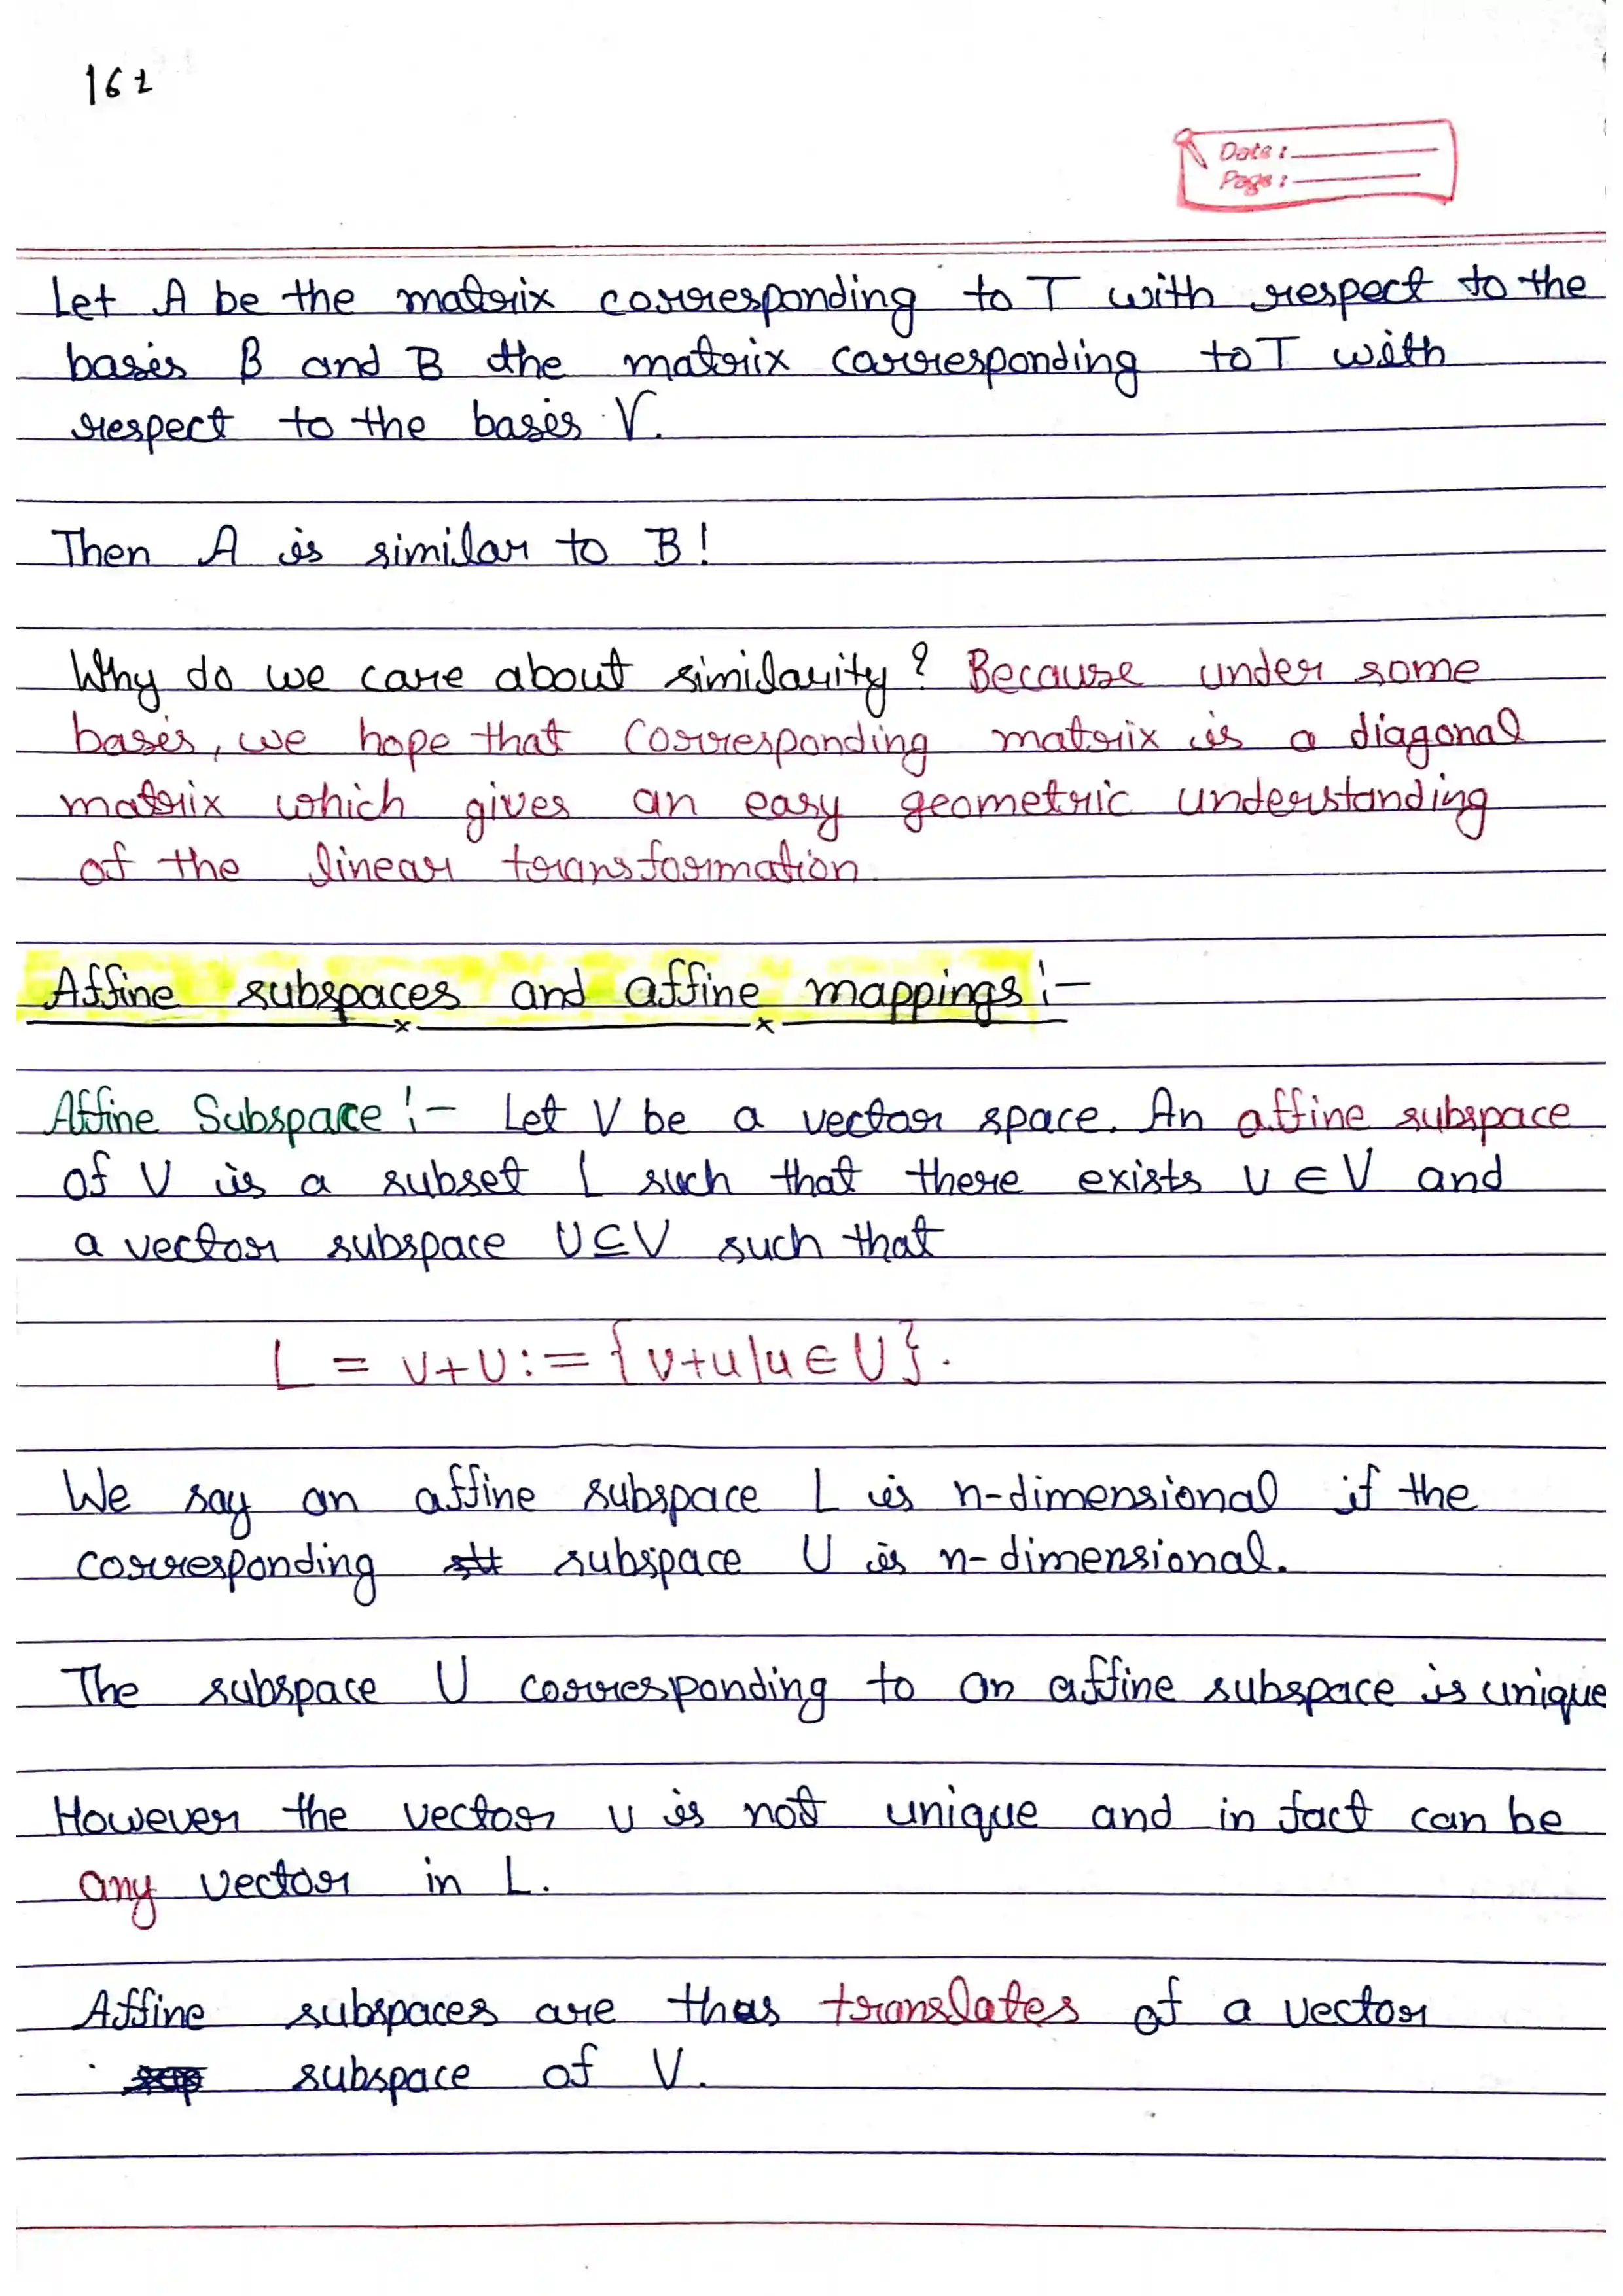 162
Date:
Page:
Let A be the matrix corresponding to T with respect to the
basis β and B the matrix corresponding to T with
respect to the basis γ.
Then A is similar to B!
Why do we care about similarity? Because under some
basis, we hope that corresponding matrix is a diagonal
matrix which gives an easy geometric understanding
of the linear transformation.
Affine subspaces and affine mappings:-
Affine Subspace:- Let V be a vector space. An affine subspace
of V is a subset L such that there exists v ∈ V and
a vector subspace U⊆V such that
L = v+U := {v+u|u ∈ U}.
We say an affine subspace L is n-dimensional if the
corresponding subspace U is n-dimensional.
The subspace U corresponding to an affine subspace is unique
However the vector v is not unique and in fact can be
any vector in L.
Affine subspaces are thus translates of a vector
subspace of V.